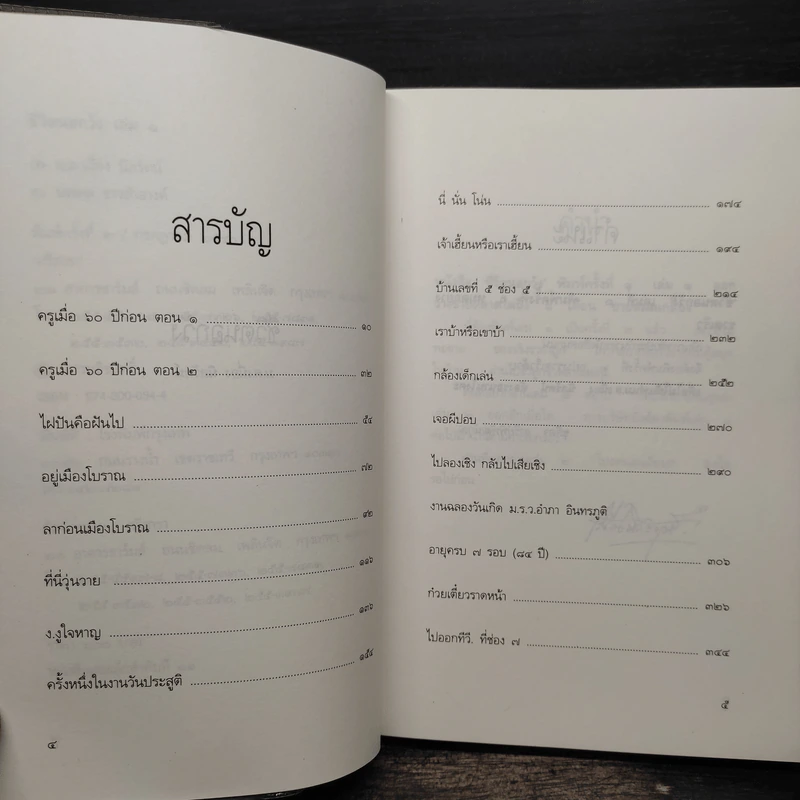 สารบัญ
ครูเมื่อ ๖๐ ปีก่อน ตอน ๑ ๑๐
ครูเมื่อ ๖๐ ปีก่อน ตอน ๒ ๓๒
ไฝปันคือฝันไป ๕๔
อยู่เมืองโบราณ ๗๒
ลาก่อนเมืองโบราณ ๙๒
ที่นี่วุ่นวาย ๑๑๖
ง.งูใจหาญ ๑๓๖
ครั้งหนึ่งในงานวันประสูติ ๑๕๔
๔
นี่ นั่น โน่น ๑๗๔
เจ้าเฮี้ยนหรือเราเฮี้ยน ๑๙๔
บ้านเลขที่ ๕ ช่อง ๕ ๒๑๔
เราบ้าหรือเขาบ้า ๒๓๒
กล้องเด็กเล่น ๒๕๒
เจอผีปอบ ๒๗๐
ไปลองเชิง กลับไปเสียเชิง ๒๙๐
งานฉลองวันเกิด ม.ร.ว.อำภา อินทรภูติ
อายุครบ ๗ รอบ (๘๔ ปี) ๓๐๖
ก๋วยเตี๋ยวราดหน้า ๓๒๖
ไปออกทีวี. ที่ช่อง ๗ ๓๔๔
๕